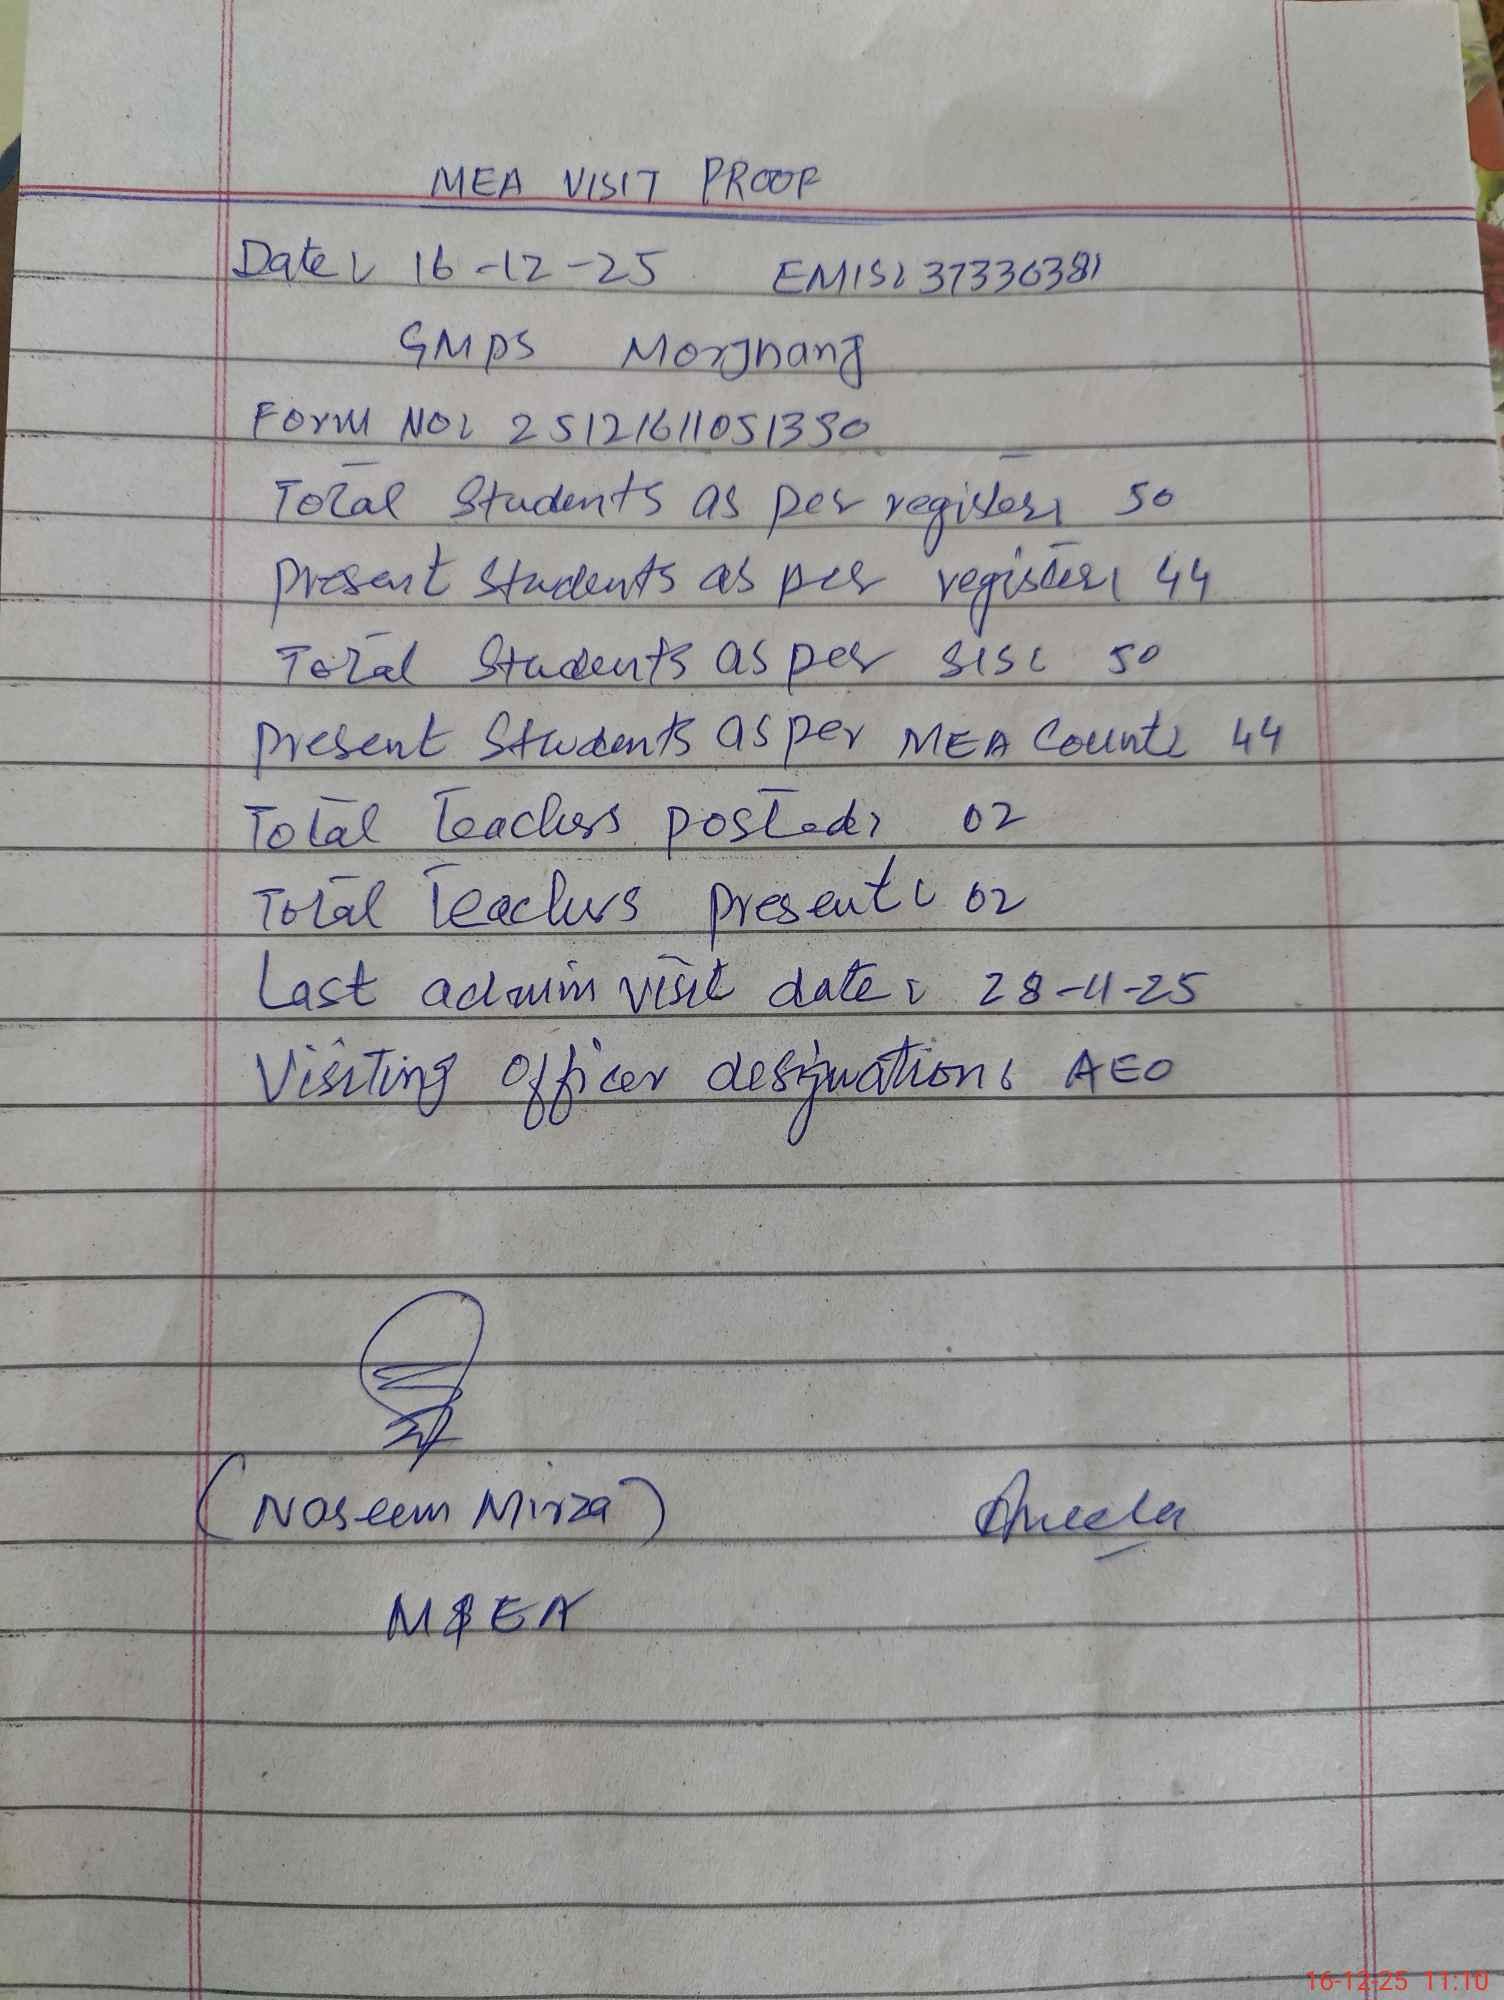 MEA VISIT PROOF
Date: 16-12-25 EMIS: 37330381
GMPS Morjhang
Form NO: 25121611051330
Total Students as per register: 50
Present Students as per register: 44
Total Students as per SIS: 50
Present Students as per MEA Count: 44
Total Teachers posted: 02
Total Teachers present: 02
Last admin visit date: 28-11-25
Visiting officer designation: AEO
(Naseem Mirza)
MEA
16-12-25 11:10